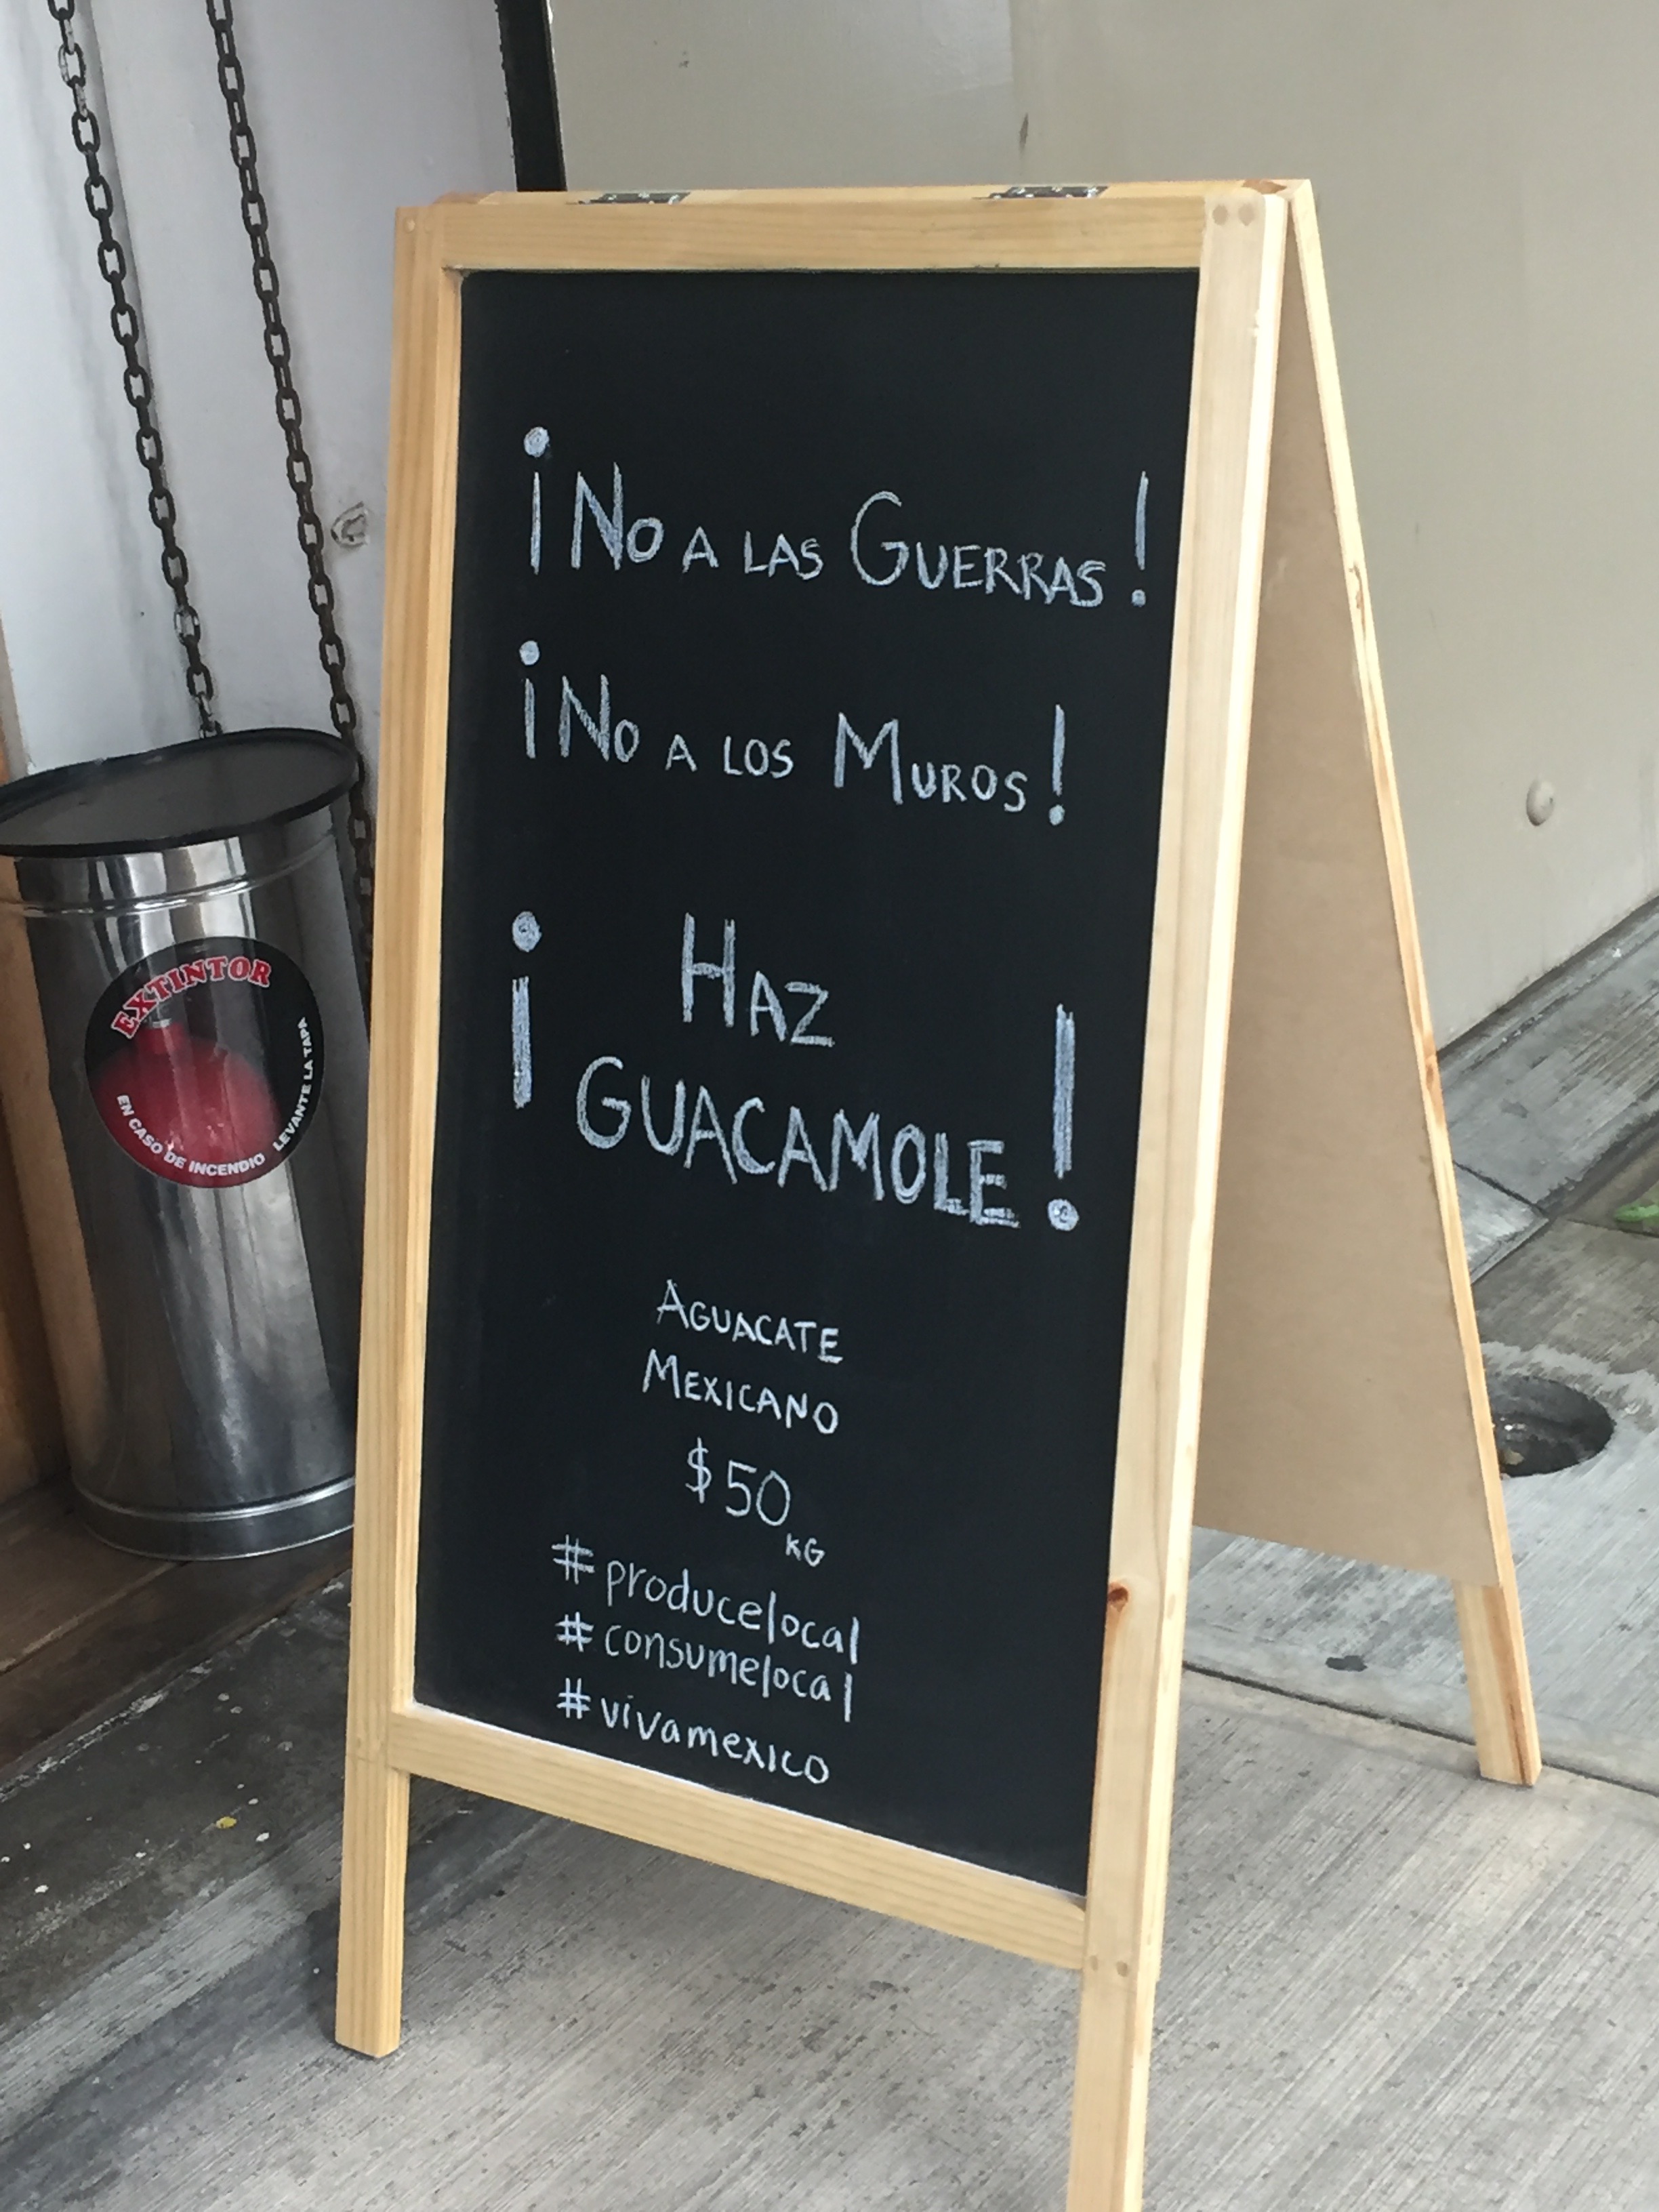 ¡No a las Guerras!
¡No a los Muros!
¡Haz
Guacamole!
Aguacate
Mexicano
$50
KG
#producelocal
#consumelocal
#vivamexico
EXTINTOR
EN CASO DE INCENDIO LEVANTE LA TAPA